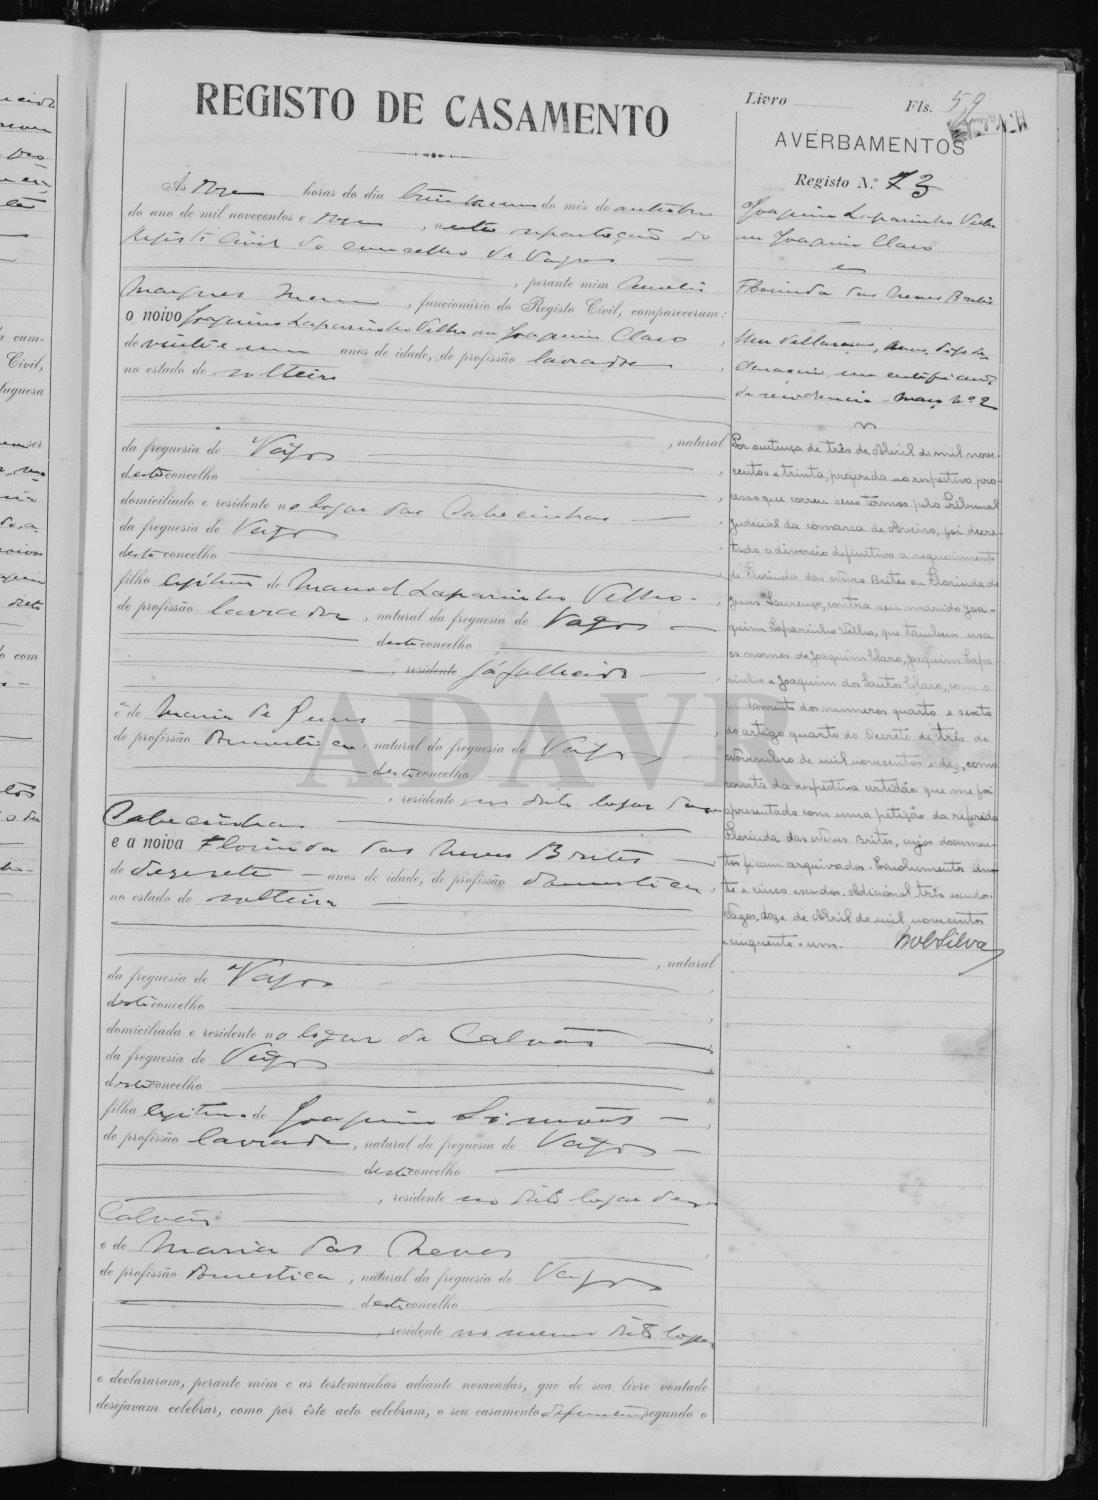 REGISTO DE CASAMENTO
Ás onze horas do dia trinta e um do mês de outubro
do ano de mil novecentos e onze, nesta repartição do
Registo Civil do concelho de Vagos
, perante mim Aurelio
Marques Mano, funcionário do Registo Civil, compareceram:
o noivo Joaquim Laparinho Velho ou Joaquim Claro
de vinte e um anos de idade, de profissão lavrador
no estado de solteiro
, natural
da freguesia de Vagos
deste concelho
domiciliado e residente no logar das Cabecinhas
da freguesia de Vagos
deste concelho
filho legitimo de Manoel Laparinho Velho
de profissão lavrador, natural da freguesia de Vagos
deste concelho
, residente já fallecido
e de Maria de Jesus
de profissão domestica, natural da freguesia de Vagos
deste concelho
, residente no dito logar das
Cabecinhas
e a noiva Florinda das Neves Brites
de dezesete anos de idade, de profissão domestica
no estado de solteira
, natural
da freguesia de Vagos
deste concelho
domiciliada e residente no logar de Calvão
da freguesia de Vagos
deste concelho
filha legitima de Joaquim Simões
de profissão lavrador, natural da freguesia de Vagos
deste concelho
, residente no dito logar de
Calvão
e de Maria das Neves
de profissão domestica, natural da freguesia de Vagos
deste concelho
, residente no mesmo dito logar
e declararam, perante mim e as testemunhas adiante nomeadas, que de sua livre vontade
desejavam celebrar, como por êste acto celebram, o seu casamento definitivo, segundo o
Livro Fls. 59
AVERBAMENTOS
Registo N.º 73
Joaquim Laparinho Velho
ou Joaquim Claro
e
Florinda das Neves Brites
um certificado
de residencia - Maço nº 2
Por sentença de três de Abril de mil nove-
centos e trinta, proferida no respetivo pro-
cesso que correu seus termos pelo Tribunal
Judicial da comarca de Aveiro, foi decre-
tado o divorcio definitivo a requerimento
de Florinda das Neves Brites ou Florinda de
Jesus Lourenço, contra seu marido Joa-
quim Laparinho Velho, que tambem usa
os nomes de Joaquim Claro, Joaquim Lapa-
rinho e Joaquim dos Santos Claro, com o
fundamento dos numeros quarto e sexto
do artigo quarto do Decreto de três de
Novembro de mil novecentos e dez, como
consta da respetiva certidão que me foi
apresentada com uma petição da referida
Florinda das Neves Brites, cujos documen-
tos ficam arquivados. Emolumentos vin-
te e cinco escudos. Adicional três escudos.
Vagos, doze de Abril de mil novecentos
e cinquenta e um.
ADAVR